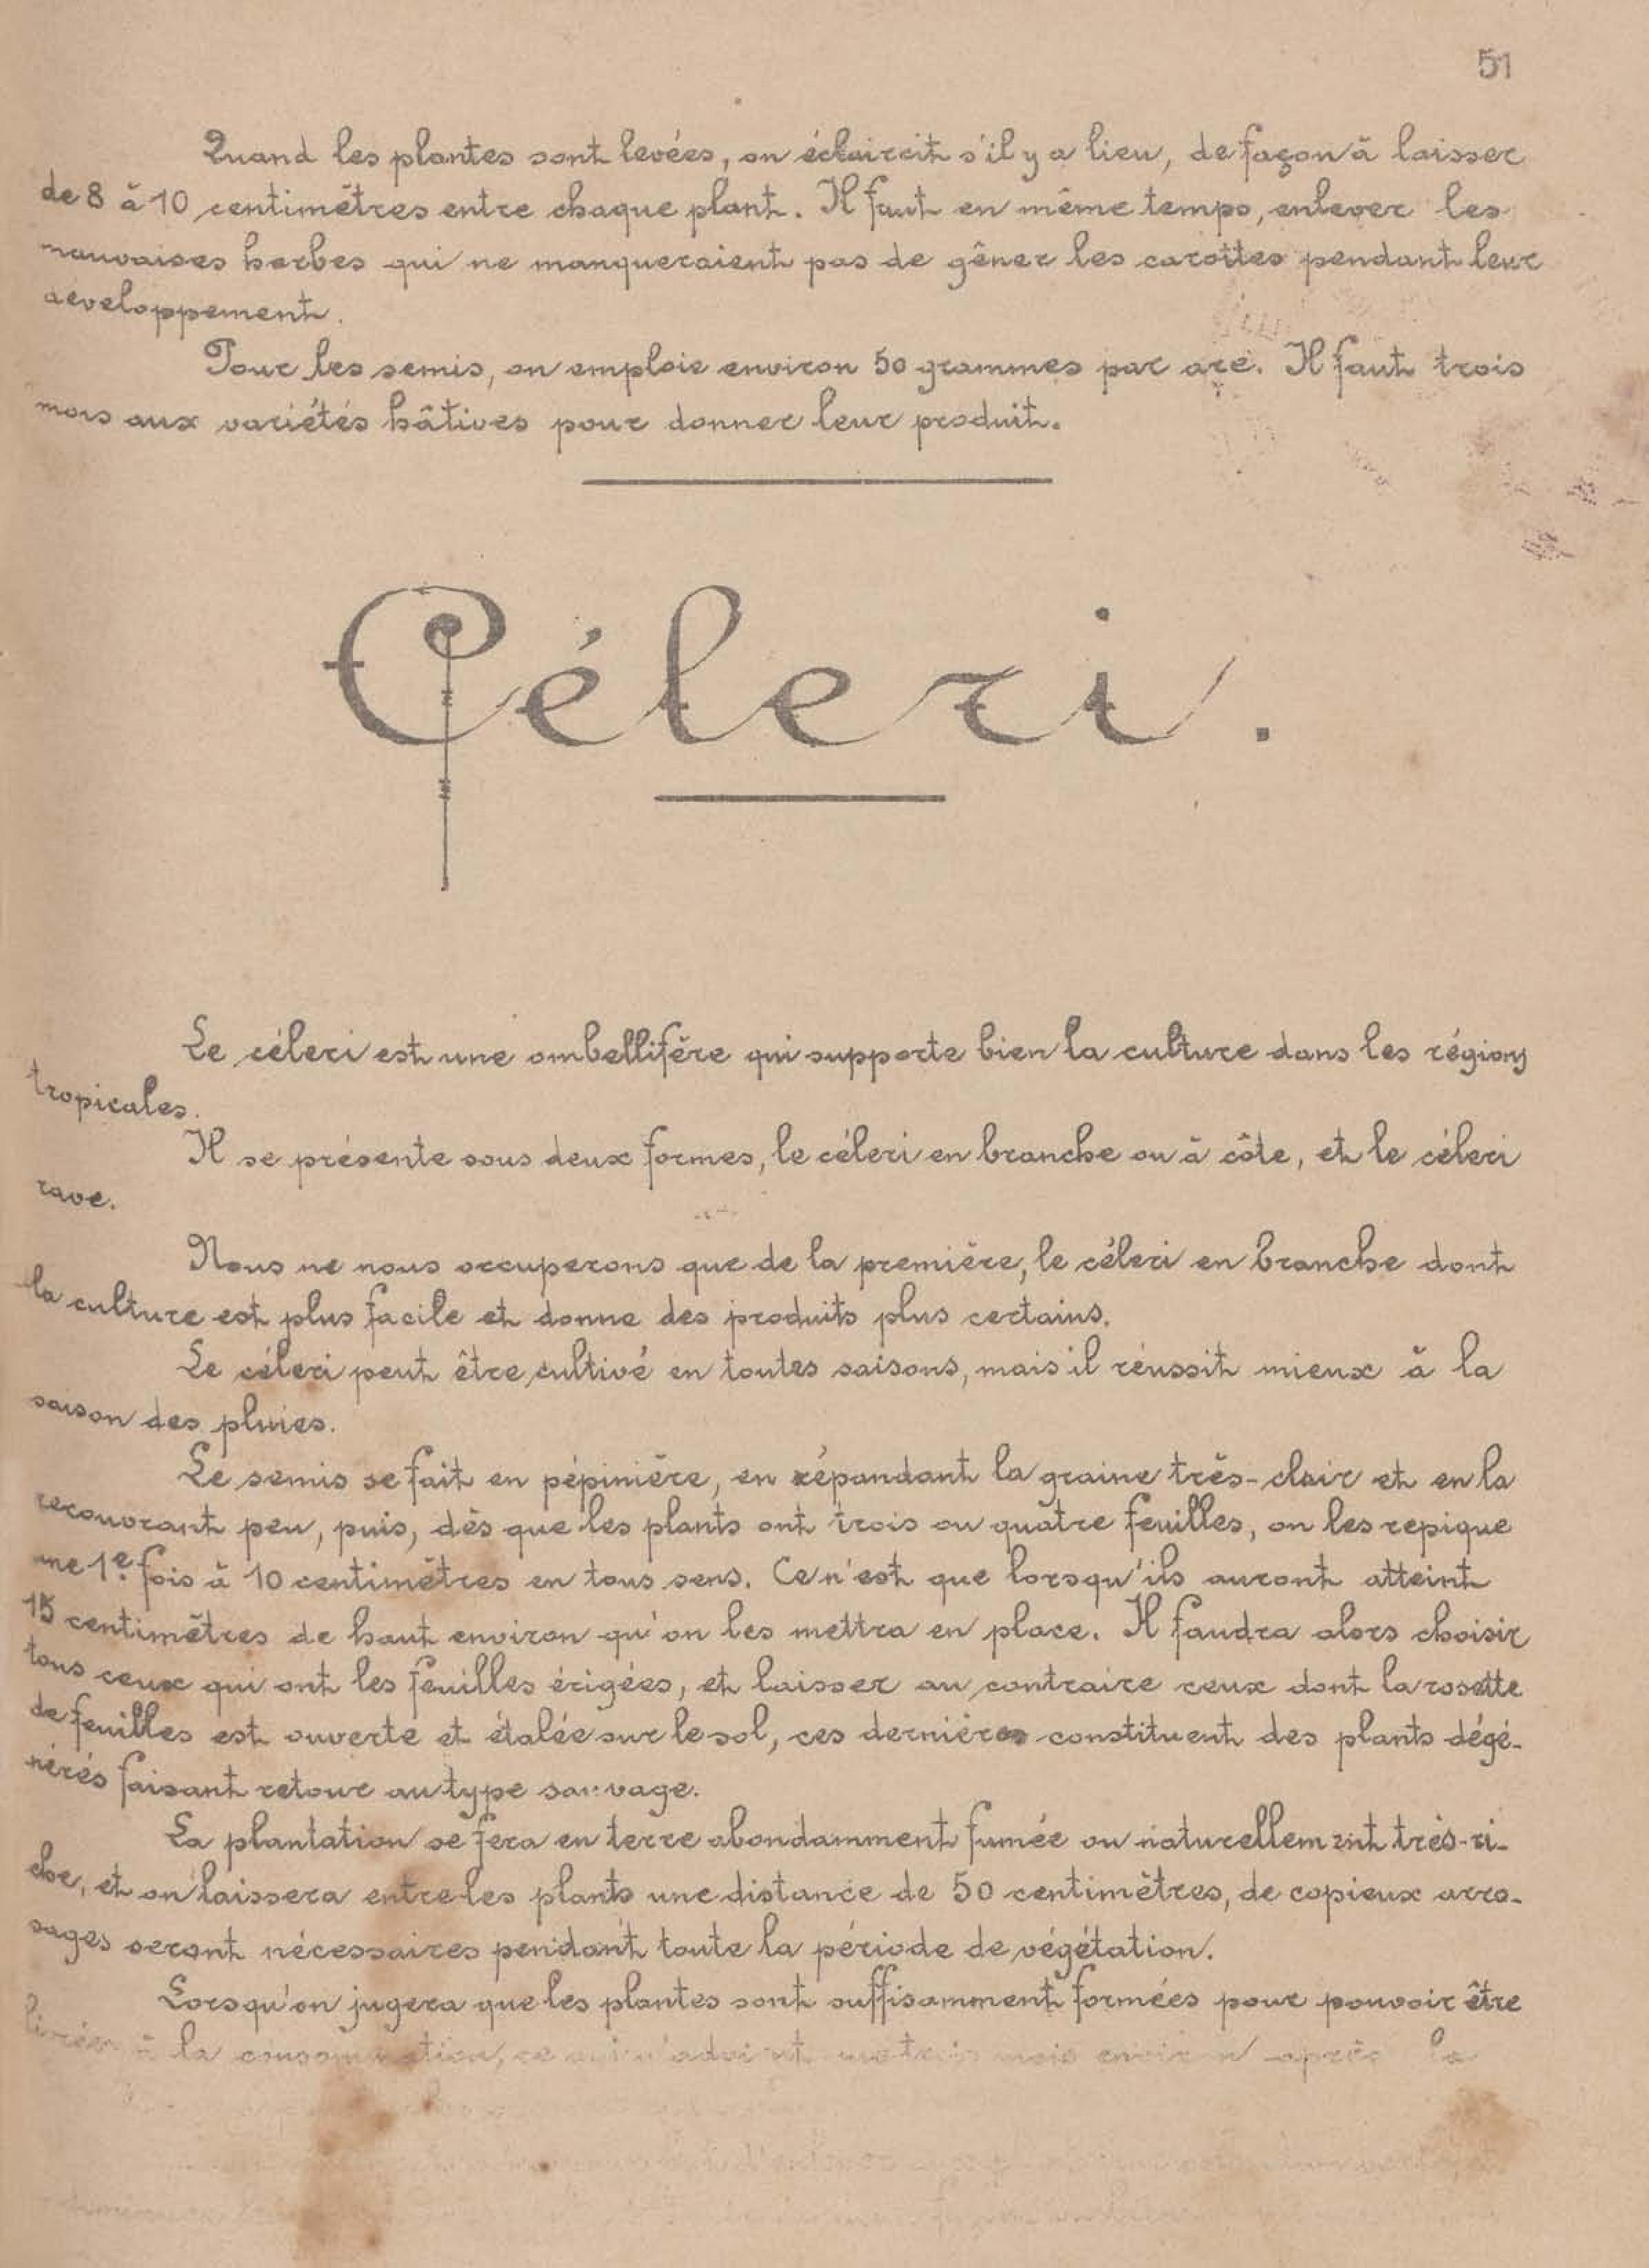 51
Quand les plantes sont levées, on éclaircit s'il y a lieu, de façon à laisser
de 8 à 10 centimètres entre chaque plant. Il faut en même temps, enlever les
mauvaises herbes qui ne manqueraient pas de gêner les carottes pendant leur
développement.
Pour les semis, on emploie environ 50 grammes par are. Il faut trois
mois aux variétés hâtives pour donner leur produit.
Céleri.
Le céleri est une ombellifère qui supporte bien la culture dans les régions
tropicales.
Il se présente sous deux formes, le céleri en branche ou à côte, et le céleri
rave.
Nous ne nous occuperons que de la première, le céleri en branche dont
la culture est plus facile et donne des produits plus certains.
Le céleri peut être cultivé en toutes saisons, mais il réussit mieux à la
saison des pluies.
Le semis se fait en pépinière, en répandant la graine très-clair et en la
recouvrant peu, puis, dès que les plants ont trois ou quatre feuilles, on les repique
une 1e. fois à 10 centimètres en tous sens. Ce n'est que lorsqu'ils auront atteint
15 centimètres de haut environ qu'on les mettra en place. Il faudra alors choisir
tous ceux qui ont les feuilles érigées, et laisser au contraire ceux dont la rosette
de feuilles est ouverte et étalée sur le sol, ces dernières constituent des plants dégé-
nérés faisant retour au type sauvage.
La plantation se fera en terre abondamment fumée ou naturellement très-ri-
che, et on laissera entre les plants une distance de 50 centimètres, de copieux arro-
sages seront nécessaires pendant toute la période de végétation.
Lorsqu'on jugera que les plantes sont suffisamment formées pour pouvoir être
livrées à la consommation, ce qui n'advient trois mois environ après la